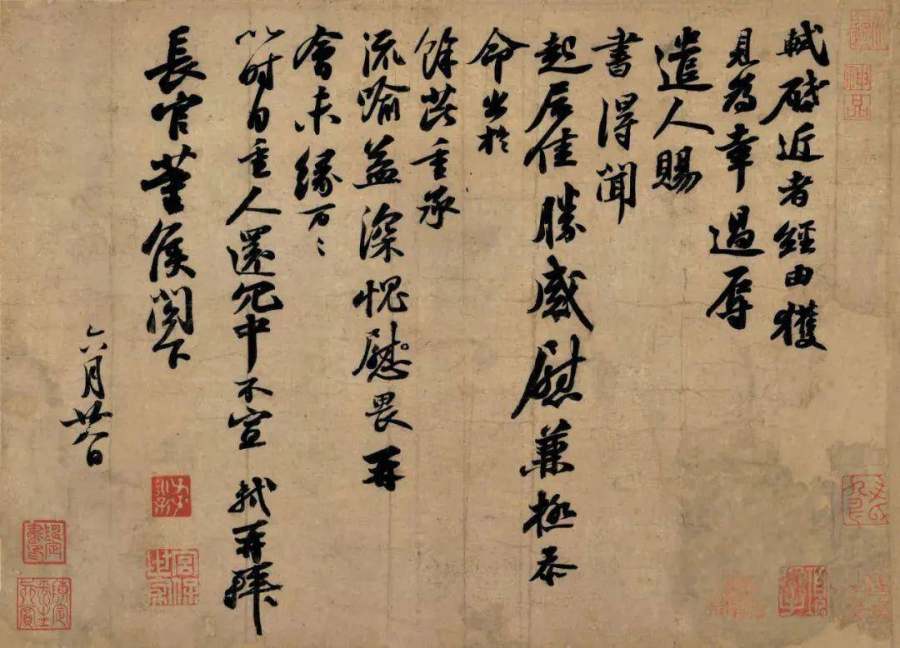 軾啓近者經由獲
見為幸過辱
遣人賜
書得聞
起居佳勝感慰兼極忝
命出於
餘芘重承
流喻益深愧慰畏再
會未緣万〻
以時自重人還冗中不宣 軾再拜
長官董侯閤下
六月廿八日